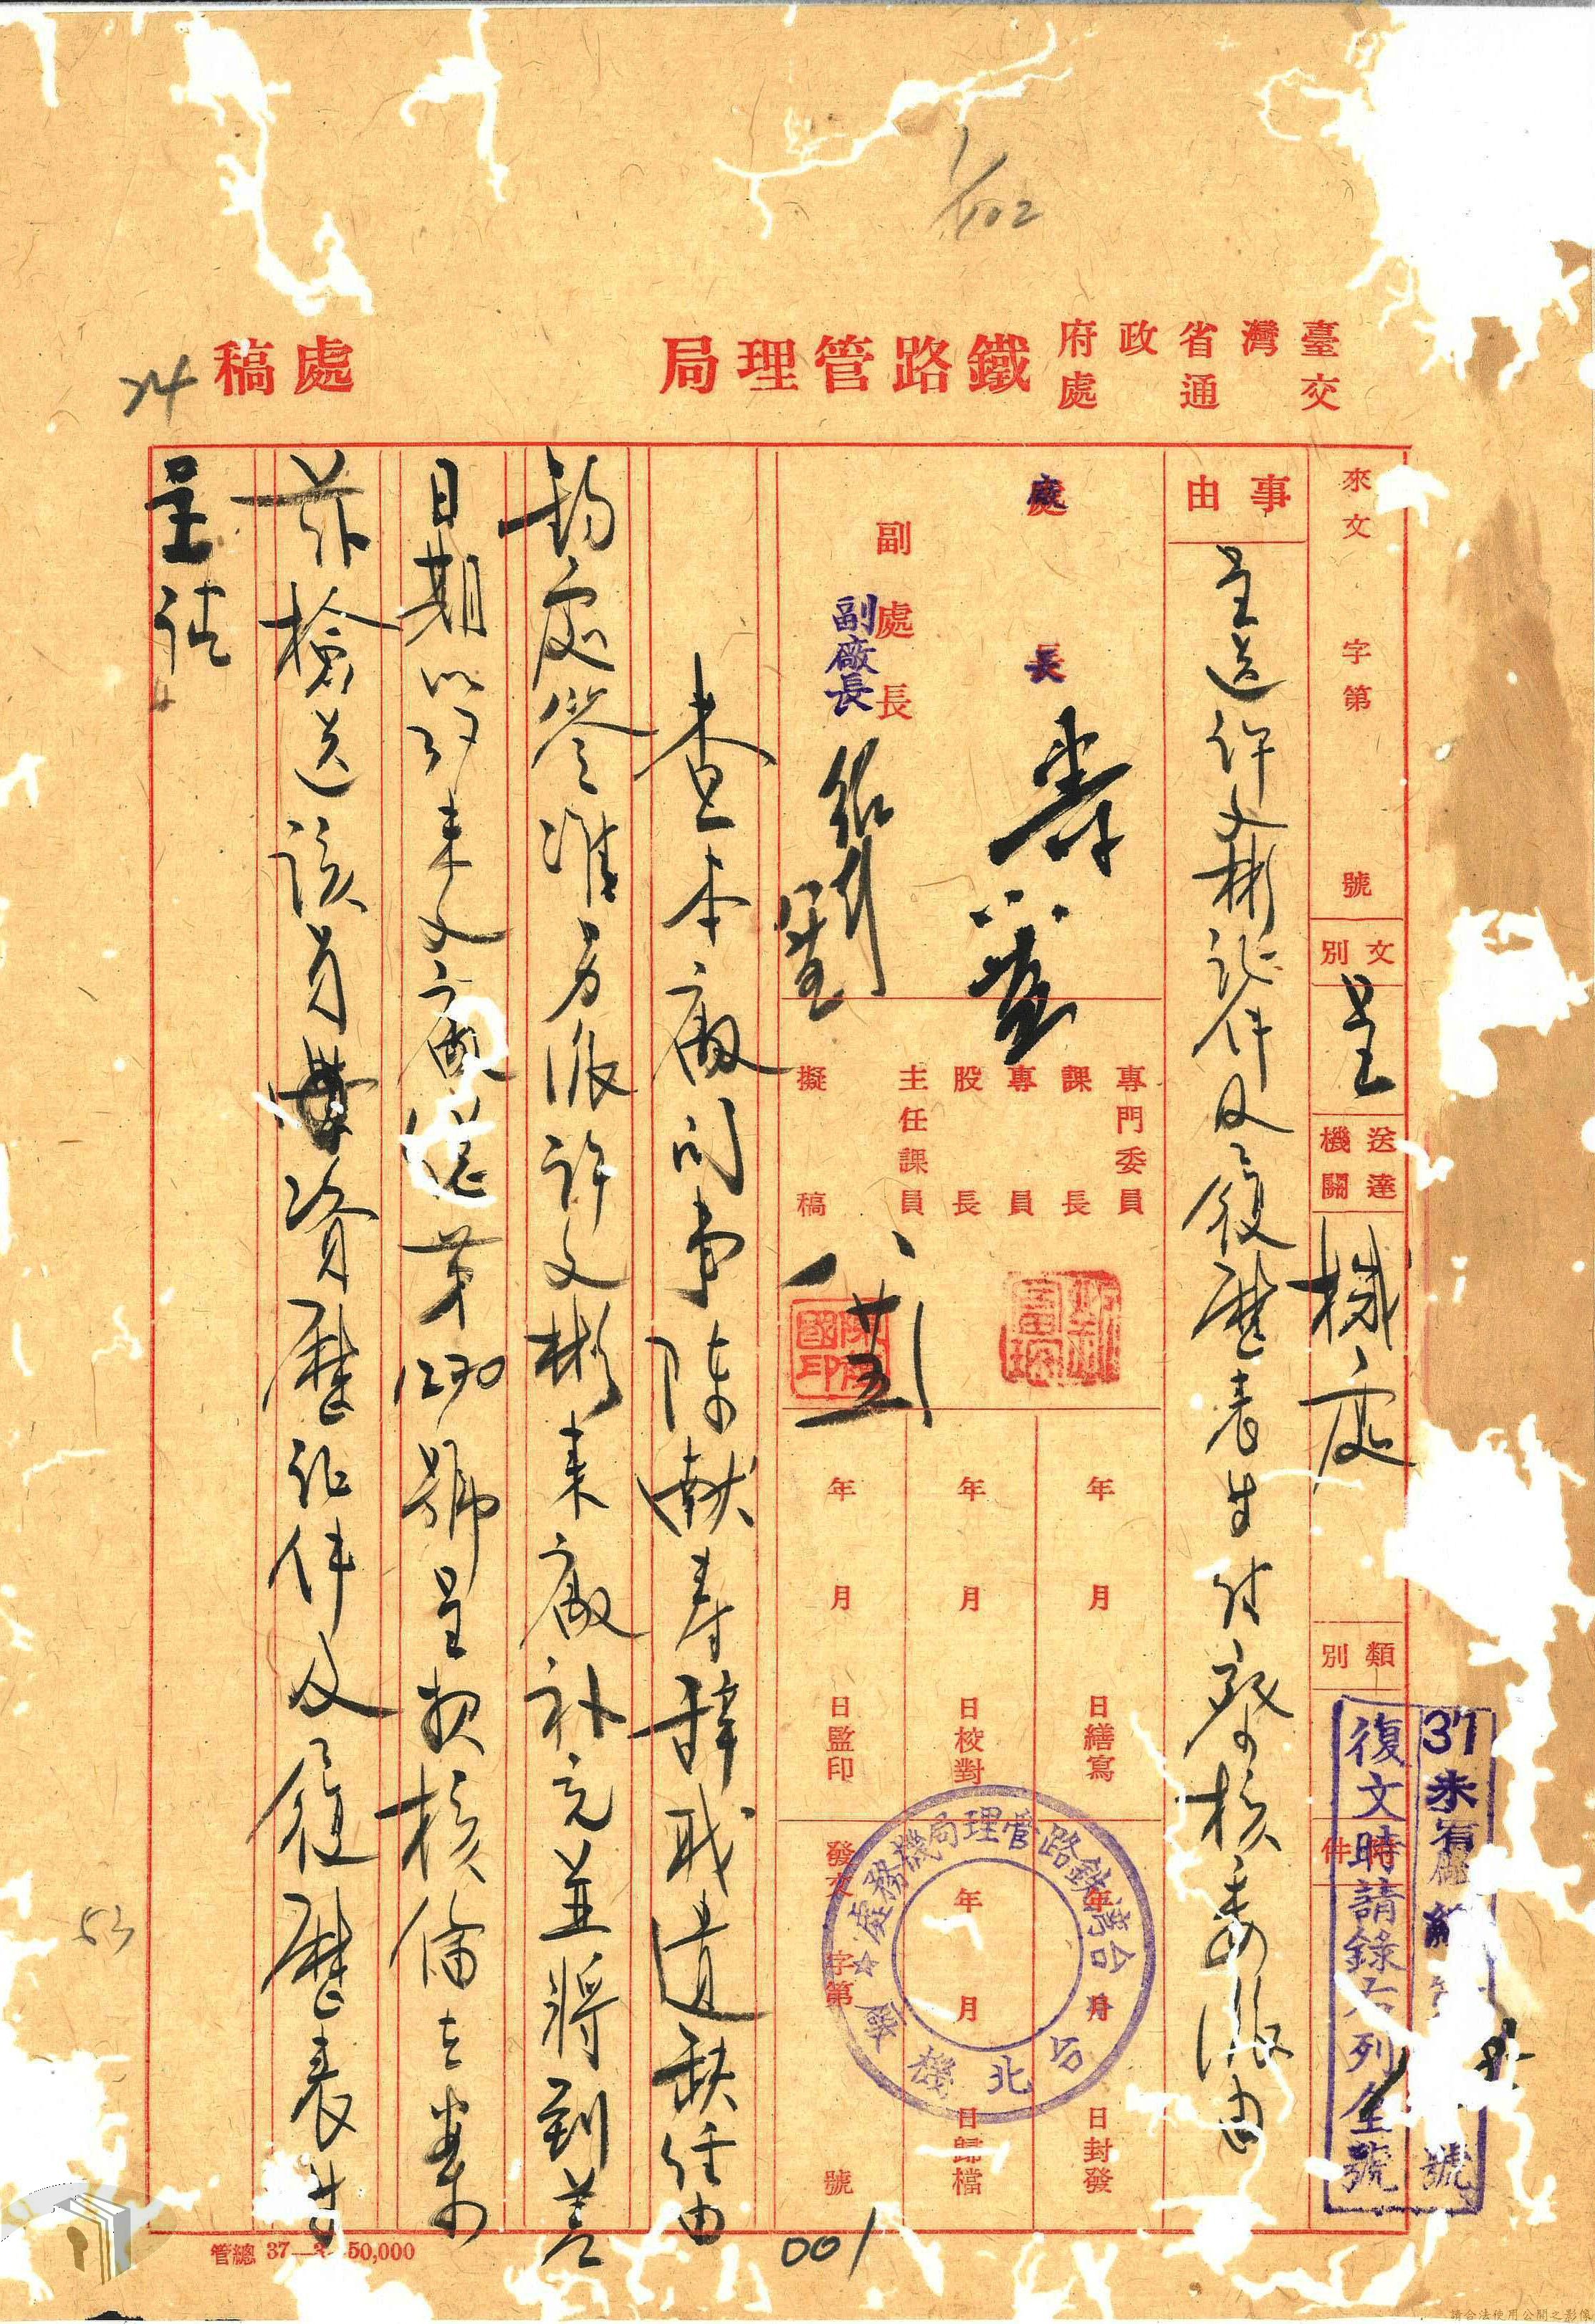 1/102
臺灣省政府
交通處
鐵路管理局
處稿
24
來文 字第 號
文別 呈
送達機關 機處
類別
附件
37未有
號
復文時請錄右列全號
事由 呈送許文彬証件及履歷表生份敬祈核委派由
處長
廠長
副處長
副廠長
專門委員
課長
專員
股長
主任課員
擬稿
年 月 日繕寫
年 月 日校對
年 月 日監印
年 月 日封發
年 月 日歸檔
發文 字第 號
台灣鐵路管理局機務處
台北機廠
查本廠司事陳献寿辞職遺缺任由
鈞處簽准另派許文彬來廠補充並將到差
日期以 未 第1270號呈報核備在案
茲檢送該員 資歷証件及履歷表
呈請
53
001
管總 37— 50,000
請合法使用公開之影像